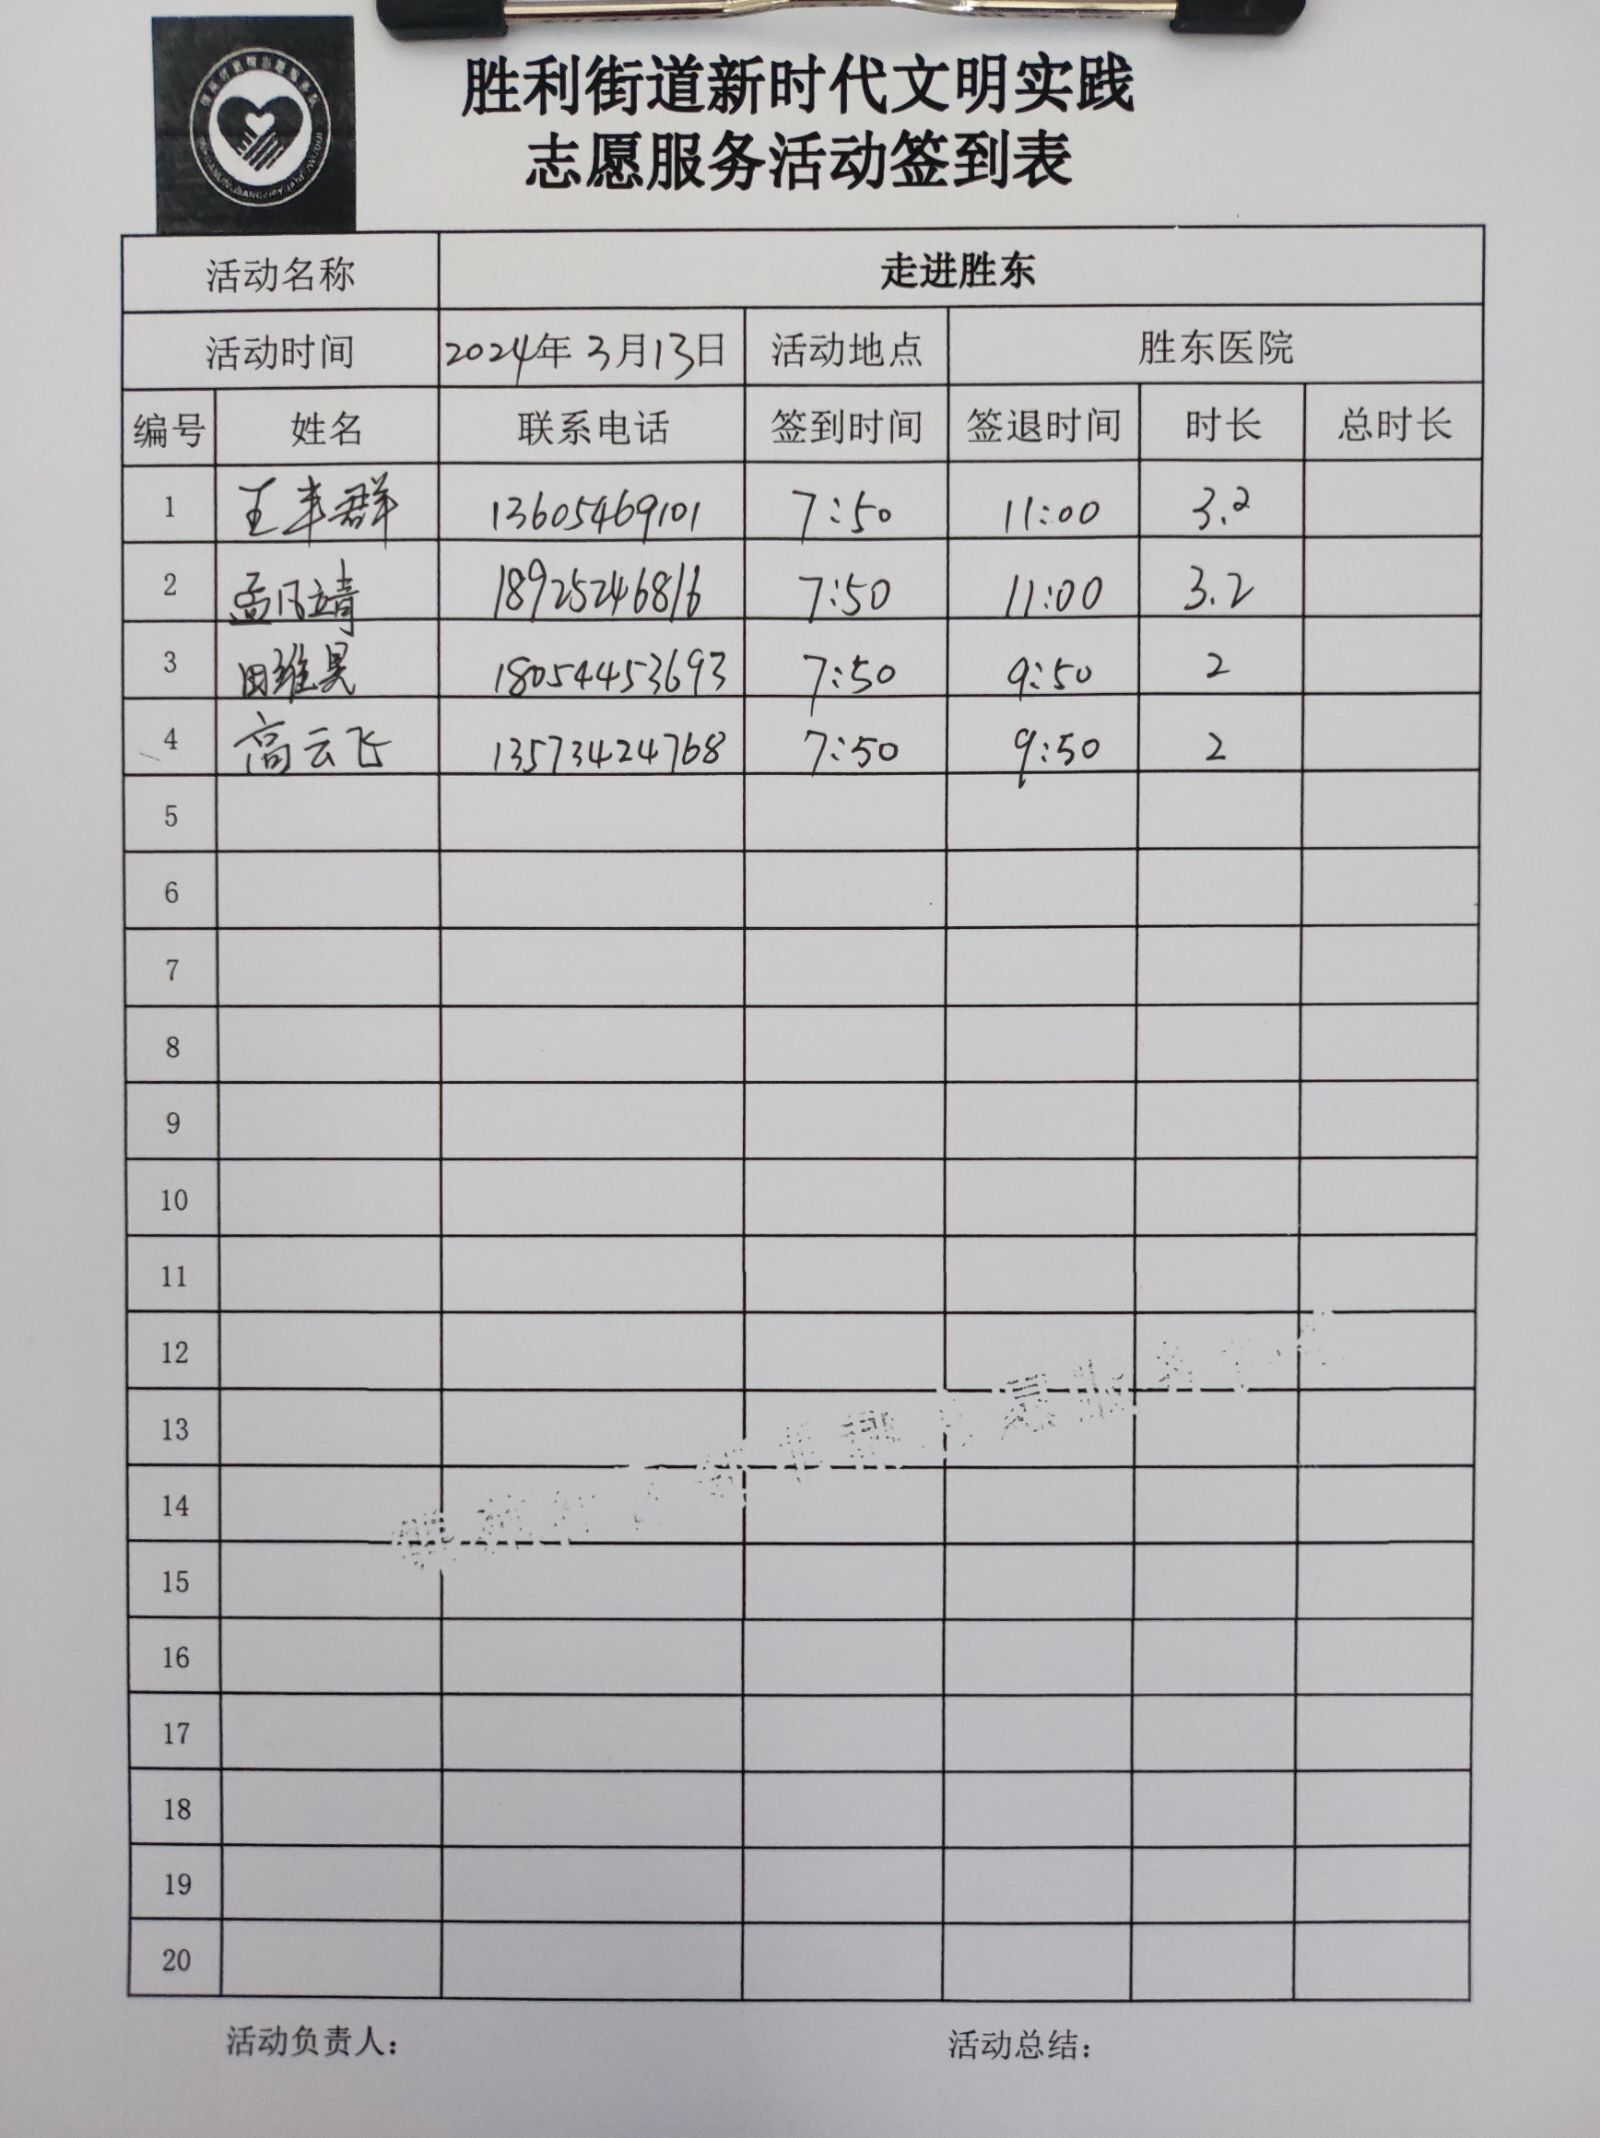 胜利街道新时代文明实践
志愿服务活动签到表
活动名称 走进胜东
活动时间 2024年3月13日 活动地点 胜东医院
编号 姓名 联系电话 签到时间 签退时间 时长 总时长
1 王丰群 13605469101 7:50 11:00 3.2
2 孟凡靖 18925246816 7:50 11:00 3.2
3 田维昊 18054453693 7:50 9:50 2
4 高云飞 13573424768 7:50 9:50 2
5
6
7
8
9
10
11
12
13
14
15
16
17
18
19
20
活动负责人: 活动总结: